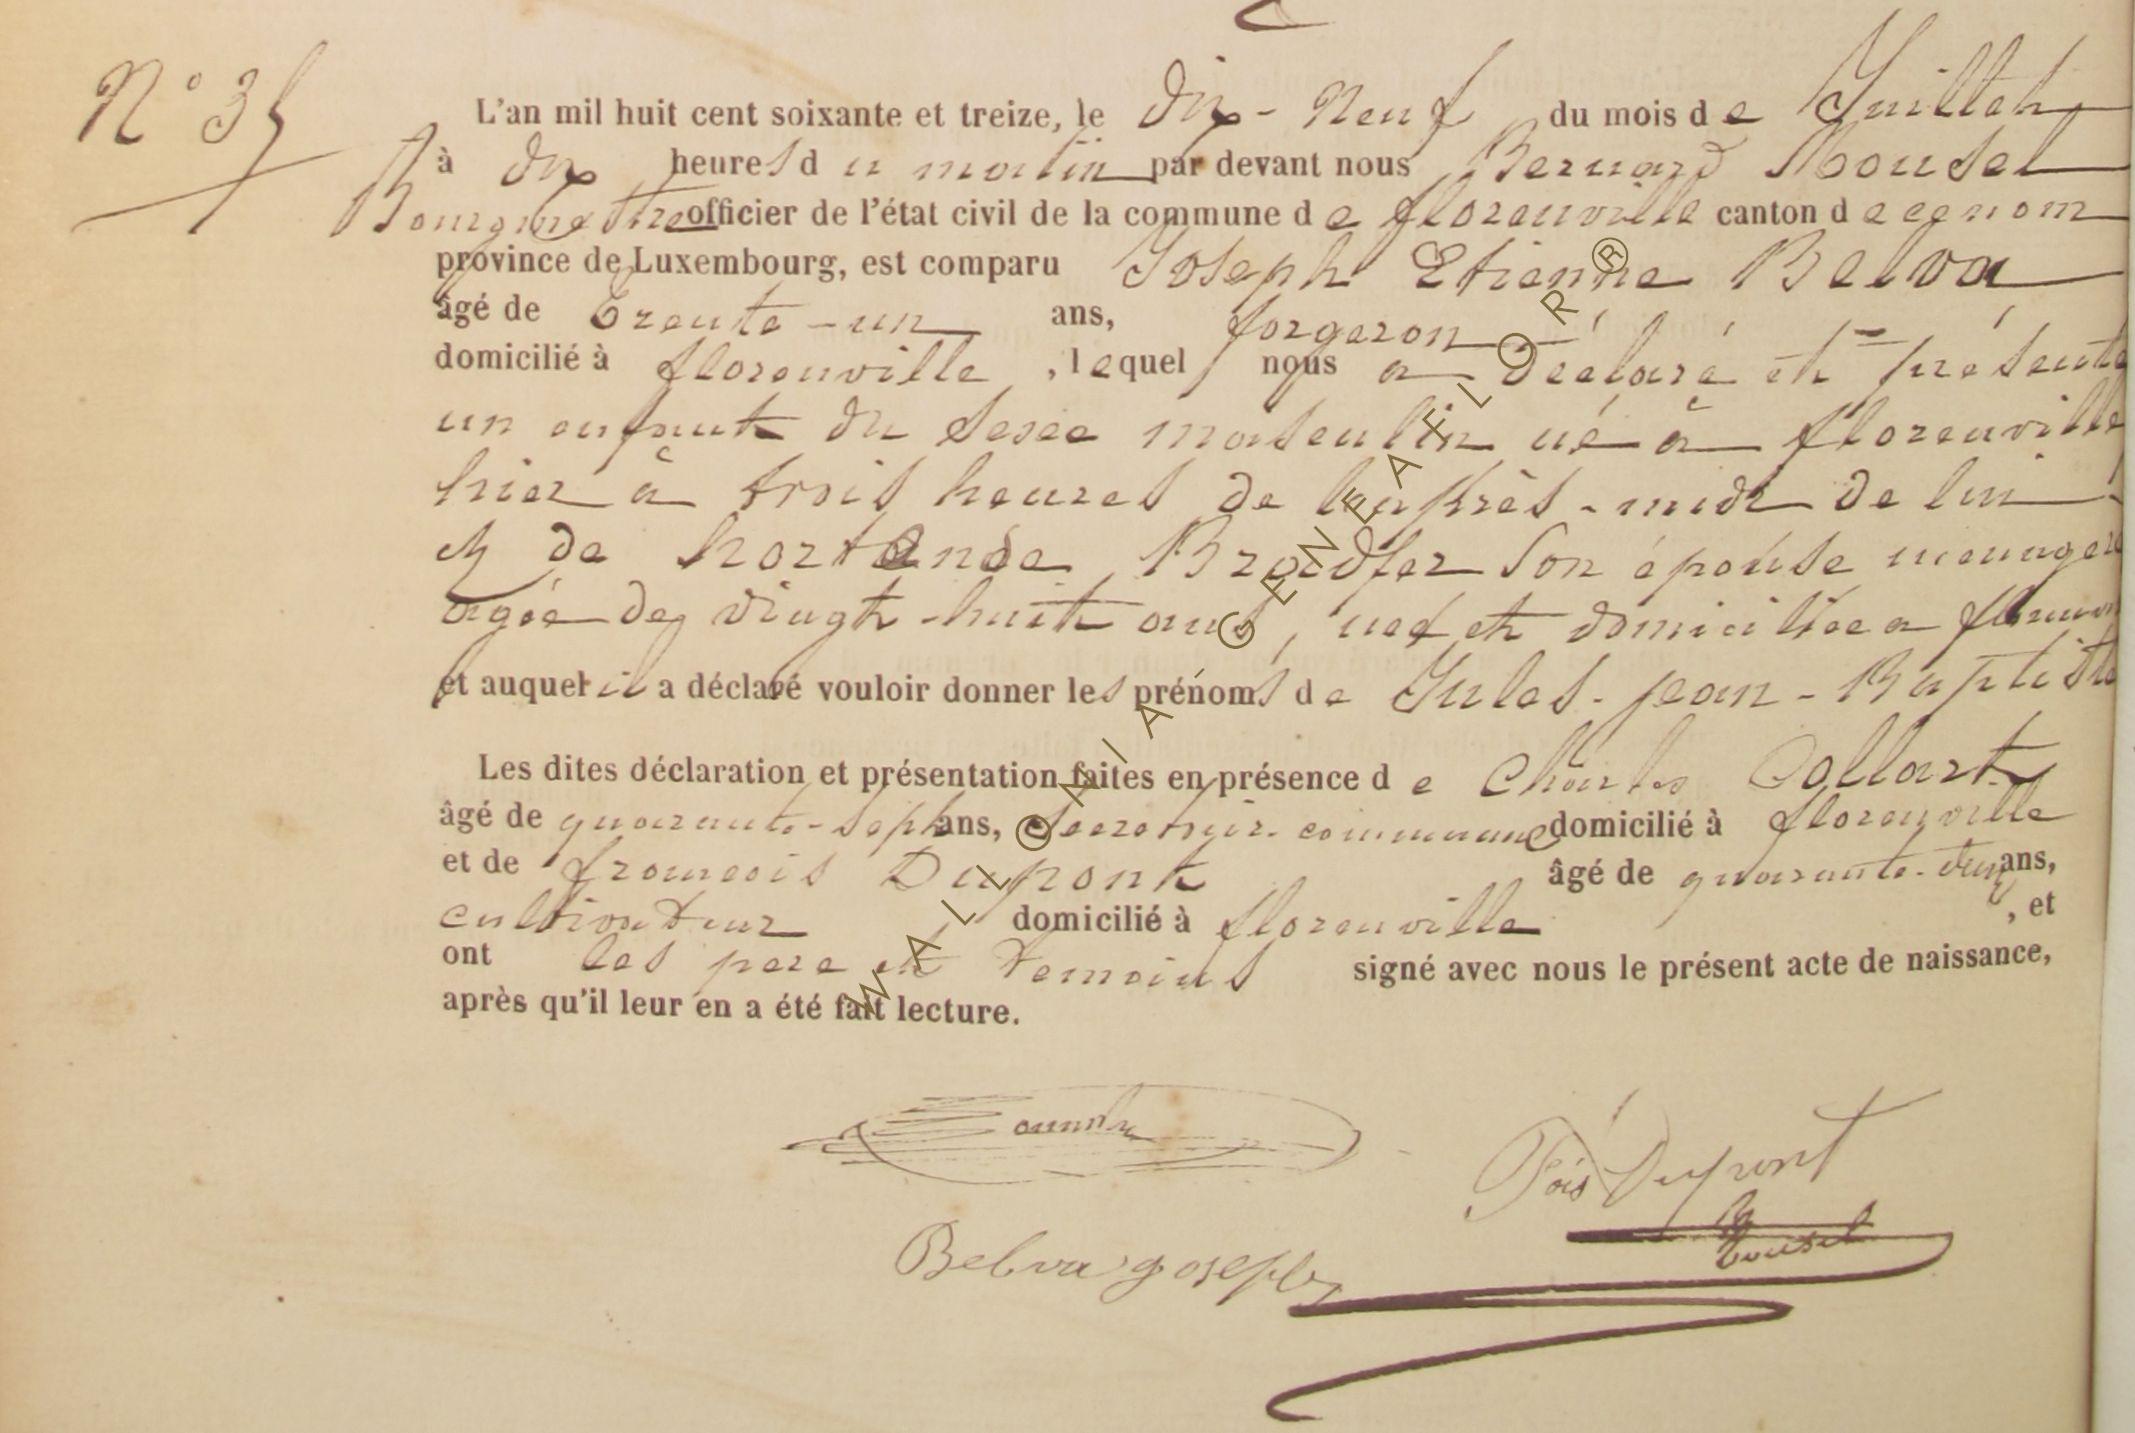 N° 35
L'an mil huit cent soixante et treize, le dix-Neuf du mois de Juillet
à dix heures du matin par devant nous Bernard Rousel
Bourgmestre officier de l'état civil de la commune de florenville canton de ce nom
province de Luxembourg, est comparu Joseph Etienne Belva
âgé de trente-un ans, forgeron
domicilié à florenville, lequel nous a déclaré et présenté
un enfant du sexe masculin né à florenville
hier à trois heures de l'après-midi de lui
et de hortense son épouse menagere
agée de vingt-huit ans, née et domiciliée a
et auquel il a déclaré vouloir donner les prénoms de Jules-jean-Baptiste
Les dites déclaration et présentation faites en présence de Charles Collart
âgé de quarante-sept ans, secretair communal domicilié à florenville
et de francois Dupont âgé de quarante-deux ans,
cultivateur domicilié à florenville, et
ont les pere et temoins signé avec nous le présent acte de naissance,
après qu'il leur en a été fait lecture.
Fois Dupont
Rousel
Belva joseph
WALLONIA GENEAFLOR ®